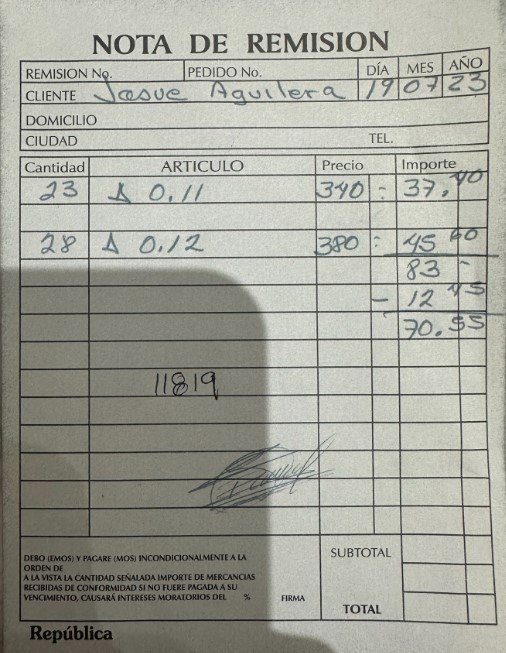 NOTA DE REMISION
REMISION No. PEDIDO No. DÍA MES AÑO
CLIENTE Josue Aguilera 19 07 23
DOMICILIO
CIUDAD TEL.
Cantidad ARTICULO Precio Importe
23 Δ 0.11 340 = 37.40
28 Δ 0.12 380 = 45 60
83 -
- 12 45
70.55
11819
DEBO (EMOS) Y PAGARE (MOS) INCONDICIONALMENTE A LA
ORDEN DE
A LA VISTA LA CANTIDAD SEÑALADA IMPORTE DE MERCANCIAS
RECIBIDAS DE CONFORMIDAD SI NO FUERE PAGADA A SU
VENCIMIENTO, CAUSARÁ INTERESES MORATORIOS DEL % FIRMA
SUBTOTAL
TOTAL
República